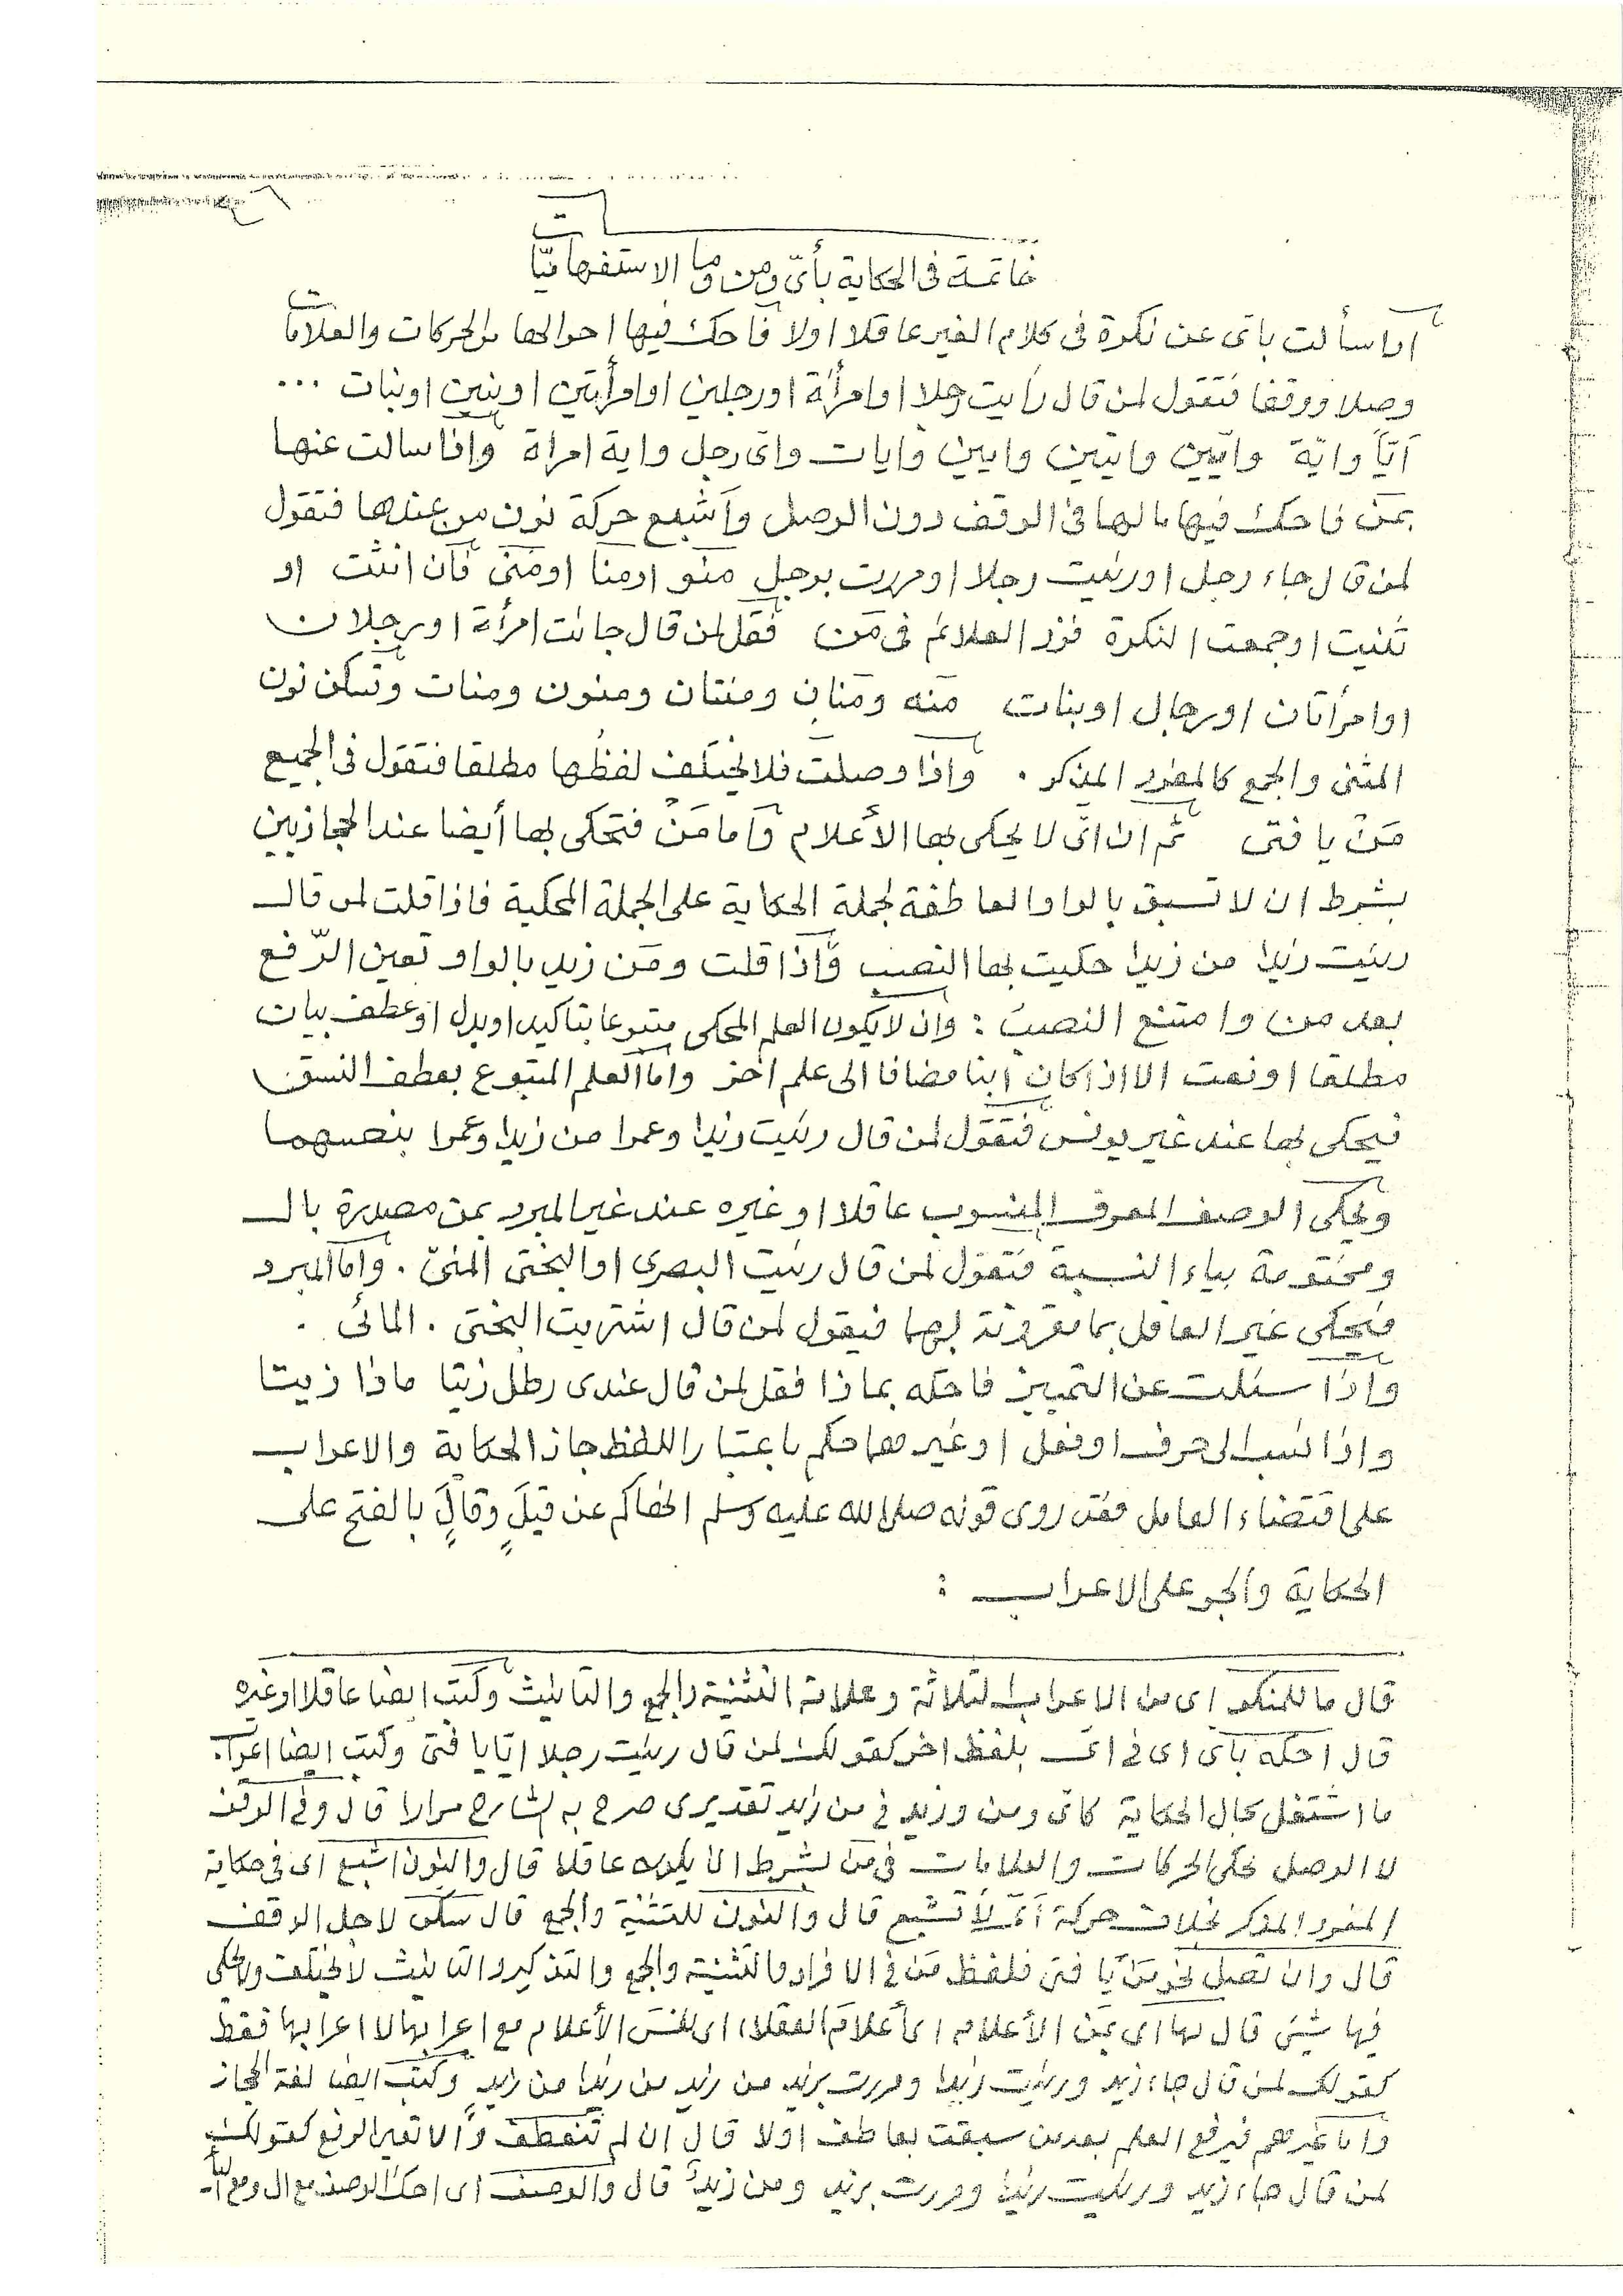 خاتمة فى الحكاية بأىّ ومن وما الاستفهاميّات
اذا سألت بأى عن نكرة فى كلام الغير عاقلا اولا فاحك فيها احوالها من الحركات والعلامات
وصلا ووقفا فتقول لمن قال رايت رجلا او امرأة او رجلين او امرأتين او بنين او بنات ...
أيّاً وايّة وايّين وايتين وايين وايات واى رجل واية امراة واذا سالت عنها
بمَن فاحك فيها مالها فى الوقف دون الوصل وأشبع حركة نون من عندها فتقول
لمن قال جاء رجل او رئيت رجلا او مررت برجل منو او منا او منى فان انثت او
ثنيت او جمعت النكرة فزد العلائم فى مَن فقل لمن قال جائت امرأة او رجلان
او امرأتان او رجال او بنات منه ومنان ومنتان ومنون ومنات وتسكن نون
المثنى والجمع كالمفرد المذكر . واذا وصلت فلا يختلف لفظها مطلقا فتقول فى الجميع
مَن يا فتى ثم ان اىّ لا يحكى بها الأعلام وأما مَن فتحكى بها أيضا عند الحجازيين
بشرط ان لا تسبق بالواو العاطفة لجملة الحكاية على الجملة المحكية فاذا قلت لمن قال
رئيت زيدا من زيدا حكيت بها النصب وّاذا قلت ومَن زيد بالواو تعين الرّفع
بعد من وامتنع النصب : وان لا يكون العلم المحكى متبوعا بتاكيد او بدل او عطف بيان
مطلقا او نعت الا اذا كان إبنا مضافا الى علم اخر واما العلم المتبوع بعطف النسق
فيحكى بها عند غير يونس فتقول لمن قال رئيت زيدا وعمرا من زيدا وعمرا بنصبهما
ويحكى الوصف المعرف المنسوب عاقلا او غيره عند غير المبرد بمن مصدرة بال
ومختومة بياء النسبة فتقول لمن قال رئيت البصرى او البختى المنىّ . واما المبرد
فيحكى غير العاقل بما مقرونة بهما فيقول لمن قال اشتريت البختى . المائى .
واذا سئلت عن التمييز فاحكه بماذا فقل لمن قال عندى رطل زيتا ماذا زيتا
واذا نسب الى حرف او فعل او غيرهما حكم باعتبار اللفظ جاز الحكاية والاعراب
على اقتضاء العامل فقد روى قوله صلى الله عليه وسلم انهاكم عن قيلَ وقالَ بالفتح على
الحكاية والجر على الاعراب :
قال ما للمنكور اى من الاعراب الثلاثة وعلامة التثنية والجمع والتانيث وكتب ايضا عاقلا او غيره
قال احكه بأى اى فى اىّ بلفظ اخر كقولك لمن قال رئيت رجلا ايّا يا فتى وكتب ايضا اعراب
ما اشتغل بحال الحكاية كاى ومن وزيد فى من زيد تقديرى صرح به الشارح مرارا قال وفى الوقف
لا الوصل تحكى الحركات والعلامات فى مَن بشرط ان يكون عاقلا قال والنون اشبع اى فى حكاية
المفرد المذكر بخلاف حركة أىّ لا تشبع قال والنون للتثنية والجمع قال سكن لاجل الوقف
قال وان تصل نحو مَن يا فتى فلفظ مَن فى الافراد والتثنية والجمع والتذكير والتانيث لا يختلف ولا يحكى
فيها شئ قال بها اى بمَن الأعلام اى أعلام العقلاء اى نفس الأعلام مع اعرابها لا اعرابها فقط
كقولك لمن قال جاء زيد ورئيت زيدا ومررت بزيد من زيد من زيدا من زيدٍ وكتب ايضا لغة الحجاز
واما غيرهم فيرفع العلم بعد من سبقت بعاطف اولا قال ان لم تنعطف وّالا تعين الرفع كقولك
لمن قال جاء زيد ورئيت زيدا ومررت بزيد ومن زيدٌ قال والوصف اى احك الوصف مع ال ومع ياء